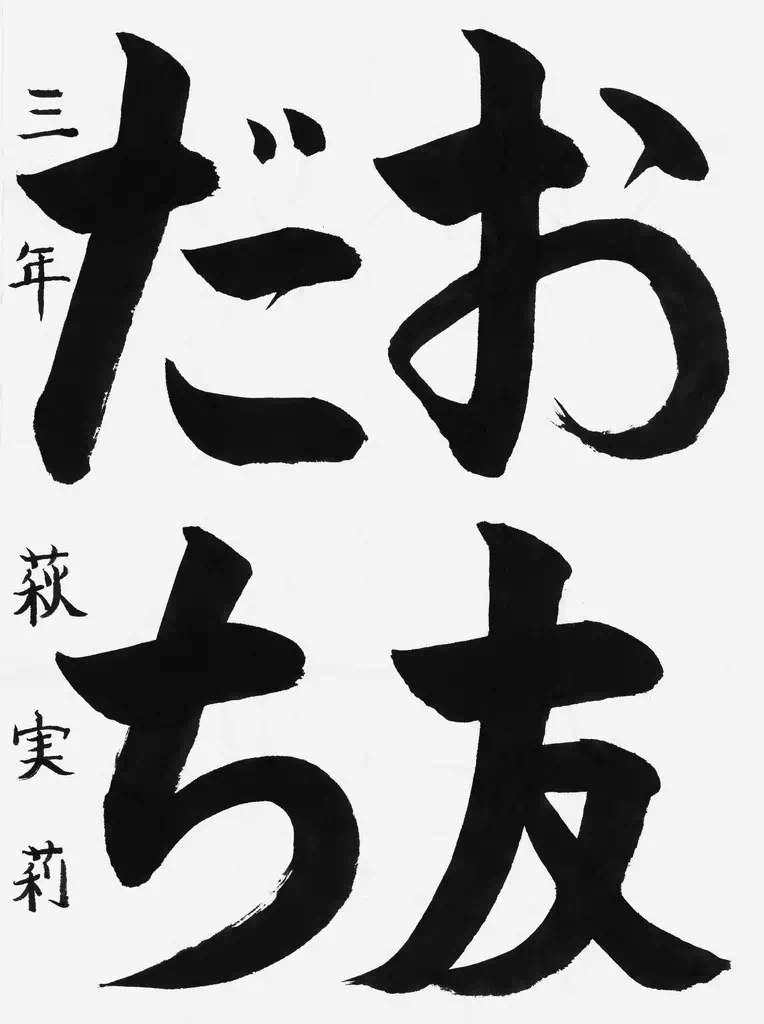 お友
だち
三年 萩実莉